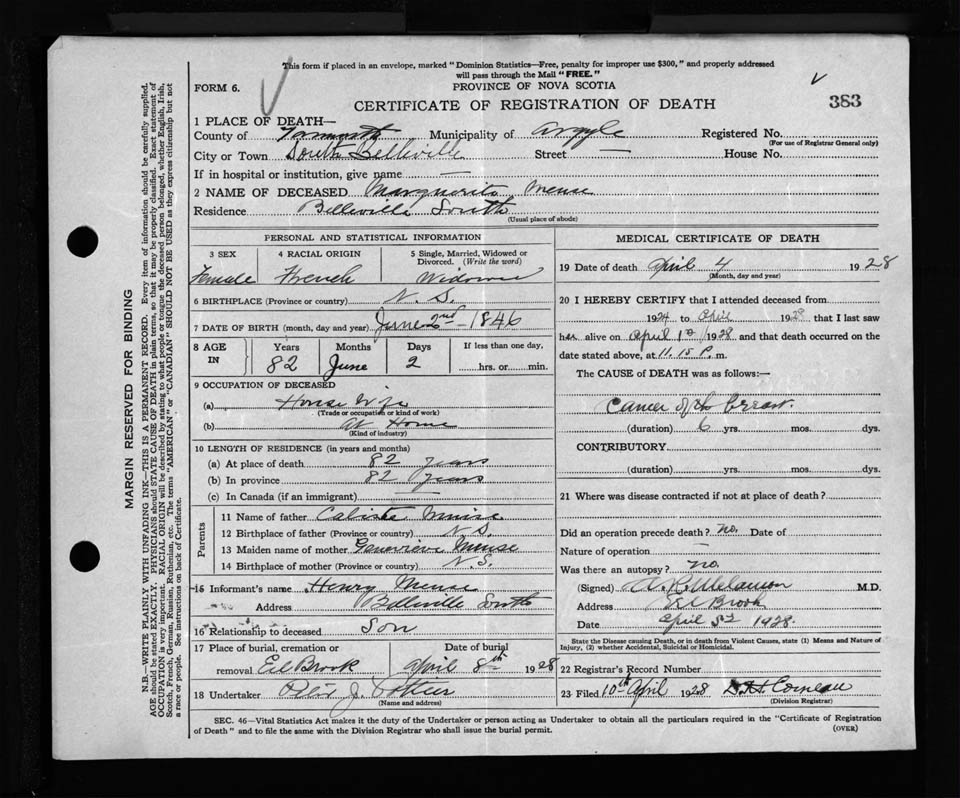 This form if placed in an envelope, marked "Dominion Statistics—Free, penalty for improper use $300," and properly addressed
will pass through the Mail "FREE."
FORM 6.
PROVINCE OF NOVA SCOTIA
383
CERTIFICATE OF REGISTRATION OF DEATH
1 PLACE OF DEATH—
County of Yarmouth Municipality of Argyle Registered No.
(For use of Registrar General only)
City or Town South Belleville Street — House No.
If in hospital or institution, give name —
2 NAME OF DECEASED Marguerite Meuse
Residence Belleville South
(Usual place of abode)
PERSONAL AND STATISTICAL INFORMATION
3 SEX 4 RACIAL ORIGIN 5 Single, Married, Widowed or Divorced. (Write the word)
Female French Widow
6 BIRTHPLACE (Province or country) N. S.
7 DATE OF BIRTH (month, day and year) June 2nd 1846
8 AGE IN Years Months Days If less than one day,
82 June 2 hrs. or min.
9 OCCUPATION OF DECEASED
(a) House Wife
(Trade or occupation or kind of work)
(b) At Home
(Kind of industry)
10 LENGTH OF RESIDENCE (in years and months)
(a) At place of death 82 years
(b) In province 82 years
(c) In Canada (if an immigrant) —
Parents
11 Name of father Caliste Muise
12 Birthplace of father (Province or country) N S.
13 Maiden name of mother Genevieve Meuse
14 Birthplace of mother (Province or country) N. S.
15 Informant's name Henry Meuse
Address Belleville South
16 Relationship to deceased Son
17 Place of burial, cremation or Date of burial
removal Eel Brook April 8th 1928
18 Undertaker J. Pothier
(Name and address)
MEDICAL CERTIFICATE OF DEATH
19 Date of death April 4 1928
(Month, day and year)
20 I HEREBY CERTIFY that I attended deceased from
1924 to April 1928 that I last saw
her alive on April 1st 1928 and that death occurred on the
date stated above, at 11.15 P. m.
The CAUSE of DEATH was as follows:—
Cancer of the breast.
(duration) 6 yrs. mos. dys.
CONTRIBUTORY
(duration) yrs. mos. dys.
21 Where was disease contracted if not at place of death?
Did an operation precede death? no. Date of
Nature of operation —
Was there an autopsy? no.
(Signed) Melanson M.D.
Address Eel Brook
Date April 5th 1928.
State the Disease causing Death, or in death from Violent Causes, state (1) Means and Nature of
Injury, (2) whether Accidental, Suicidal or Homicidal.
22 Registrar's Record Number
23 Filed 10th April 1928 Comeau
(Division Registrar)
SEC. 46—Vital Statistics Act makes it the duty of the Undertaker or person acting as Undertaker to obtain all the particulars required in the "Certificate of Registration
of Death" and to file the same with the Division Registrar who shall issue the burial permit.
(OVER)
MARGIN RESERVED FOR BINDING
N.B.—WRITE PLAINLY WITH UNFADING INK—THIS IS A PERMANENT RECORD. Every item of information should be carefully supplied.
AGE should be stated EXACTLY. PHYSICIANS should STATE CAUSE OF DEATH in plain terms, so that it may be properly classified. Exact statement of
OCCUPATION is very important. RACIAL ORIGIN will be described by stating to what people or tongue the deceased person belonged, whether English, Irish,
Scotch, French, German, Russian, Ruthenian, etc. The terms "AMERICAN" or "CANADIAN" SHOULD NOT BE USED as they express citizenship but not
a race or people. See instructions on back of Certificate.